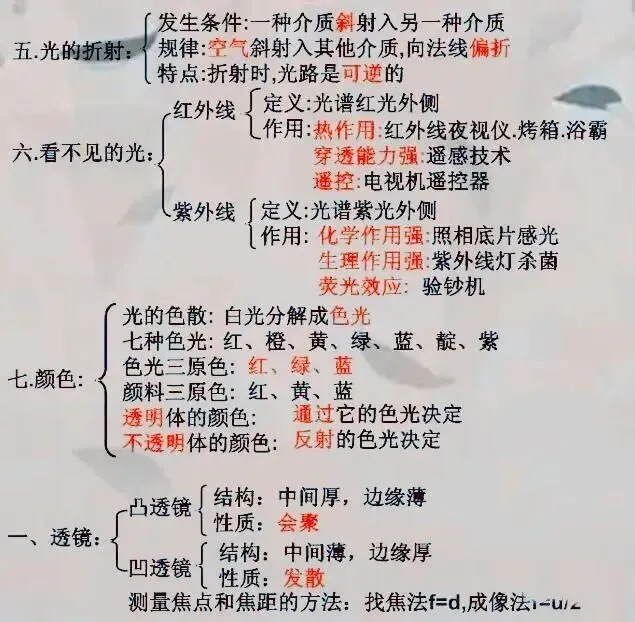 发生条件:一种介质斜射入另一种介质
五.光的折射:
规律:空气斜射入其他介质,向法线偏折
特点:折射时,光路是可逆的
红外线
定义:光谱红光外侧
作用:热作用:红外线夜视仪.烤箱.浴霸
穿透能力强:遥感技术
遥控:电视机遥控器
六.看不见的光:
紫外线
定义:光谱紫光外侧
作用:化学作用强:照相底片感光
生理作用强:紫外线灯杀菌
荧光效应: 验钞机
光的色散: 白光分解成色光
七种色光: 红、橙、黄、绿、蓝、靛、紫
七.颜色:
色光三原色: 红、绿、蓝
颜料三原色: 红、黄、蓝
透明体的颜色: 通过它的色光决定
不透明体的颜色: 反射的色光决定
一、透镜:
凸透镜
结构: 中间厚, 边缘薄
性质: 会聚
凹透镜
结构: 中间薄, 边缘厚
性质: 发散
测量焦点和焦距的方法: 找焦法f=d,成像法f=u/2